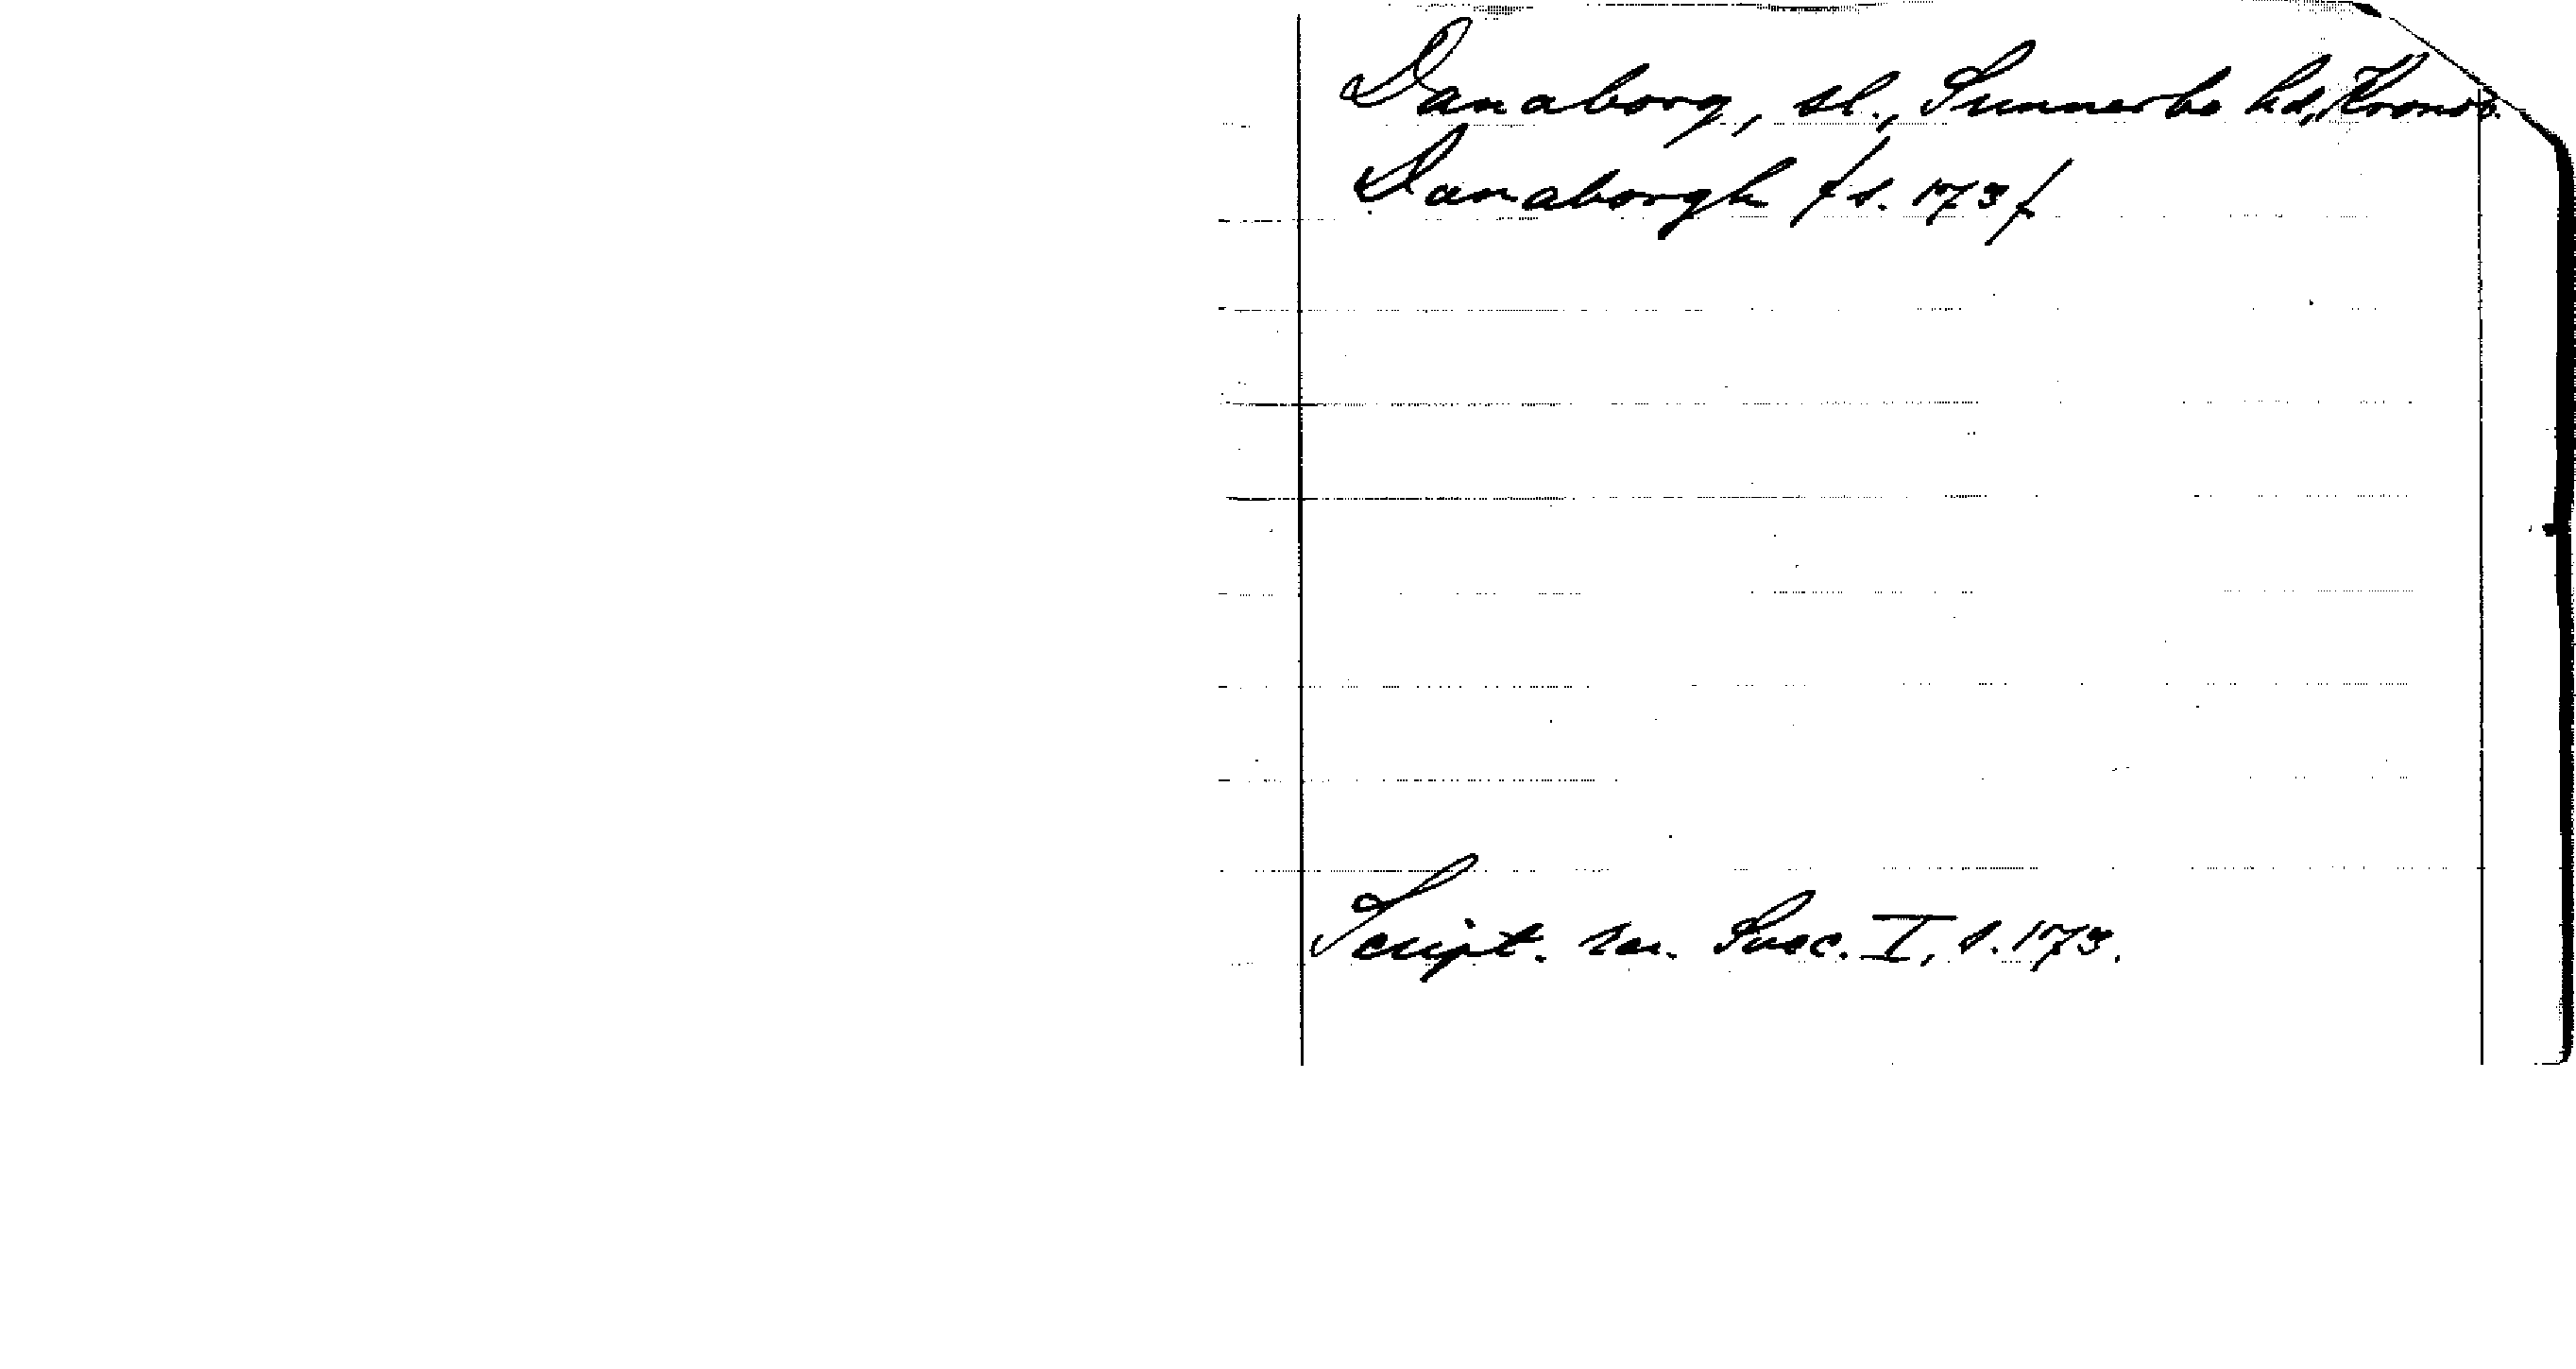 Danaborg, sl., Sunnerbo hd, Kronob.
Danaborgh /s. 173/
Script. rer. Suec. I, s. 173.